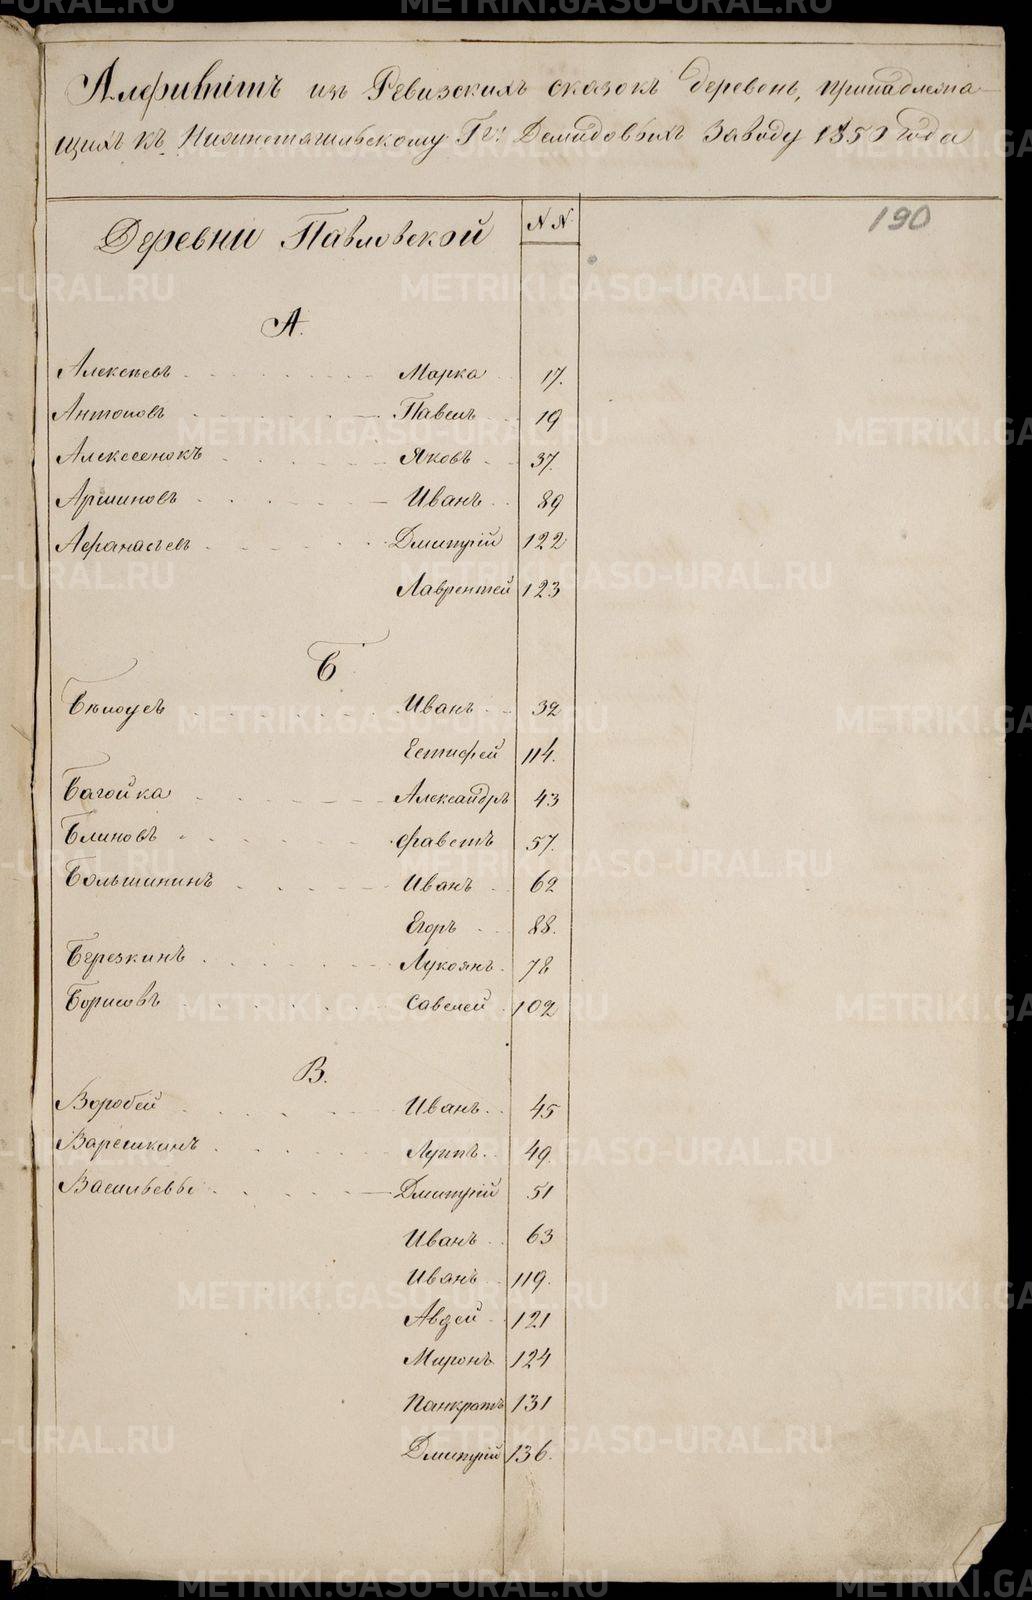 Алфивитъ изъ Ревизскихъ сказокъ деревень, принадлежа-
щихъ къ Нижнетагильскому Гг: Демидовыхъ Заводу 1850 года
190
Деревни Павловской
N N
А.
Алексѣевъ Марка 17.
Антоновъ Павелъ 19
Алексеенокъ Яковъ 37.
Аршиновъ Иванъ 89
Афанасьевъ Дмитрій 122
Лаврентей 123
Б
Бѣлоусъ Иванъ 32
Естифей 114.
Багойка Александръ 43
Блиновъ 57.
Большининъ Иванъ 62
Егоръ 88.
Березкинъ Лукоянъ 78
Борисовъ Савелей 102
В.
Воробей Иванъ 45
Варешкинъ Лупъ 49
Васильевы Дмитрій 51
Иванъ 63
Иванъ 119.
Авдей 121
Миронъ 124
Панкратъ 131
Дмитрій 136.
METRIKI.GASO-URAL.RU